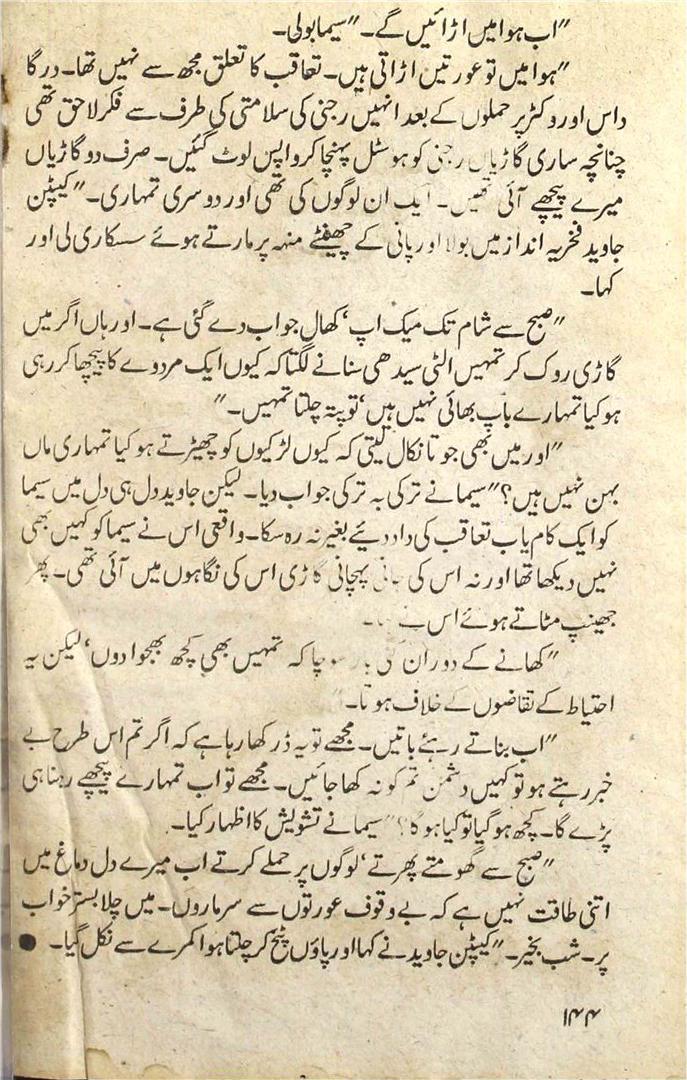 "اب ہوا میں اڑائیں گے۔" سیما بولی۔
"ہوا میں تو عورتیں اڑاتی ہیں۔ تعاقب کا تعلق مجھ سے نہیں تھا۔ درگا
داس اور وکٹر پر حملوں کے بعد انہیں رجنی کی سلامتی کی طرف سے فکر لاحق تھی
چنانچہ ساری گاڑیاں رجنی کو ہوسٹل پہنچا کر واپس لوٹ گئیں۔ صرف دو گاڑیاں
میرے پیچھے آئی تھیں۔ ایک ان لوگوں کی تھی اور دوسری تمہاری۔" کیپٹن
جاوید فخریہ انداز میں بولا اور پانی کے چھینٹے منہ پر مارتے ہوئے سسکاری لی اور
کہا۔
"صبح سے شام تک میک اپ، کھال جواب دے گئی ہے۔ اور ہاں اگر میں
گاڑی روک کر تمہیں الٹی سیدھی سنانے لگتا کہ کیوں ایک مردوے کا پیچھا کر رہی
ہو کیا تمہارے باپ بھائی نہیں ہیں، تو پتہ چلتا تمہیں۔"
"اور میں بھی جوتا نکال لیتی کہ کیوں لڑکیوں کو چھیڑتے ہو کیا تمہاری ماں
بہن نہیں ہیں؟" سیما نے ترکی بہ ترکی جواب دیا۔ لیکن جاوید دل ہی دل میں سیما
کو ایک کامیاب تعاقب کی داد دیئے بغیر نہ رہ سکا۔ واقعی اس نے سیما کو کہیں بھی
نہیں دیکھا تھا اور نہ اس کی جانی پہچانی گاڑی اس کی نگاہوں میں آئی تھی۔ پھر
جھینپ مٹاتے ہوئے اس
"کھانے کے دوران کئی بار سوچا کہ تمہیں بھی کچھ بھجوا دوں، لیکن یہ
احتیاط کے تقاضوں کے خلاف ہوتا۔"
"اب بناتے رہئے باتیں۔ مجھے تو یہ ڈر کھا رہا ہے کہ اگر تم اس طرح بے
خبر رہتے ہو تو کہیں دشمن تم کو نہ کھا جائیں۔ مجھے تو اب تمہارے پیچھے رہنا ہی
پڑے گا۔ کچھ ہو گیا تو کیا ہو گا؟" سیما نے تشویش کا اظہار کیا۔
"صبح سے گھومتے پھرتے، لوگوں پر حملے کرتے اب میرے دل دماغ میں
اتنی طاقت نہیں ہے کہ بے وقوف عورتوں سے سر ماروں۔ میں چلا بستر خواب
پر۔ شب بخیر۔" کیپٹن جاوید نے کہا اور پاؤں پٹخ کر چلتا ہوا کمرے سے نکل گیا۔ ●
۱۴۴